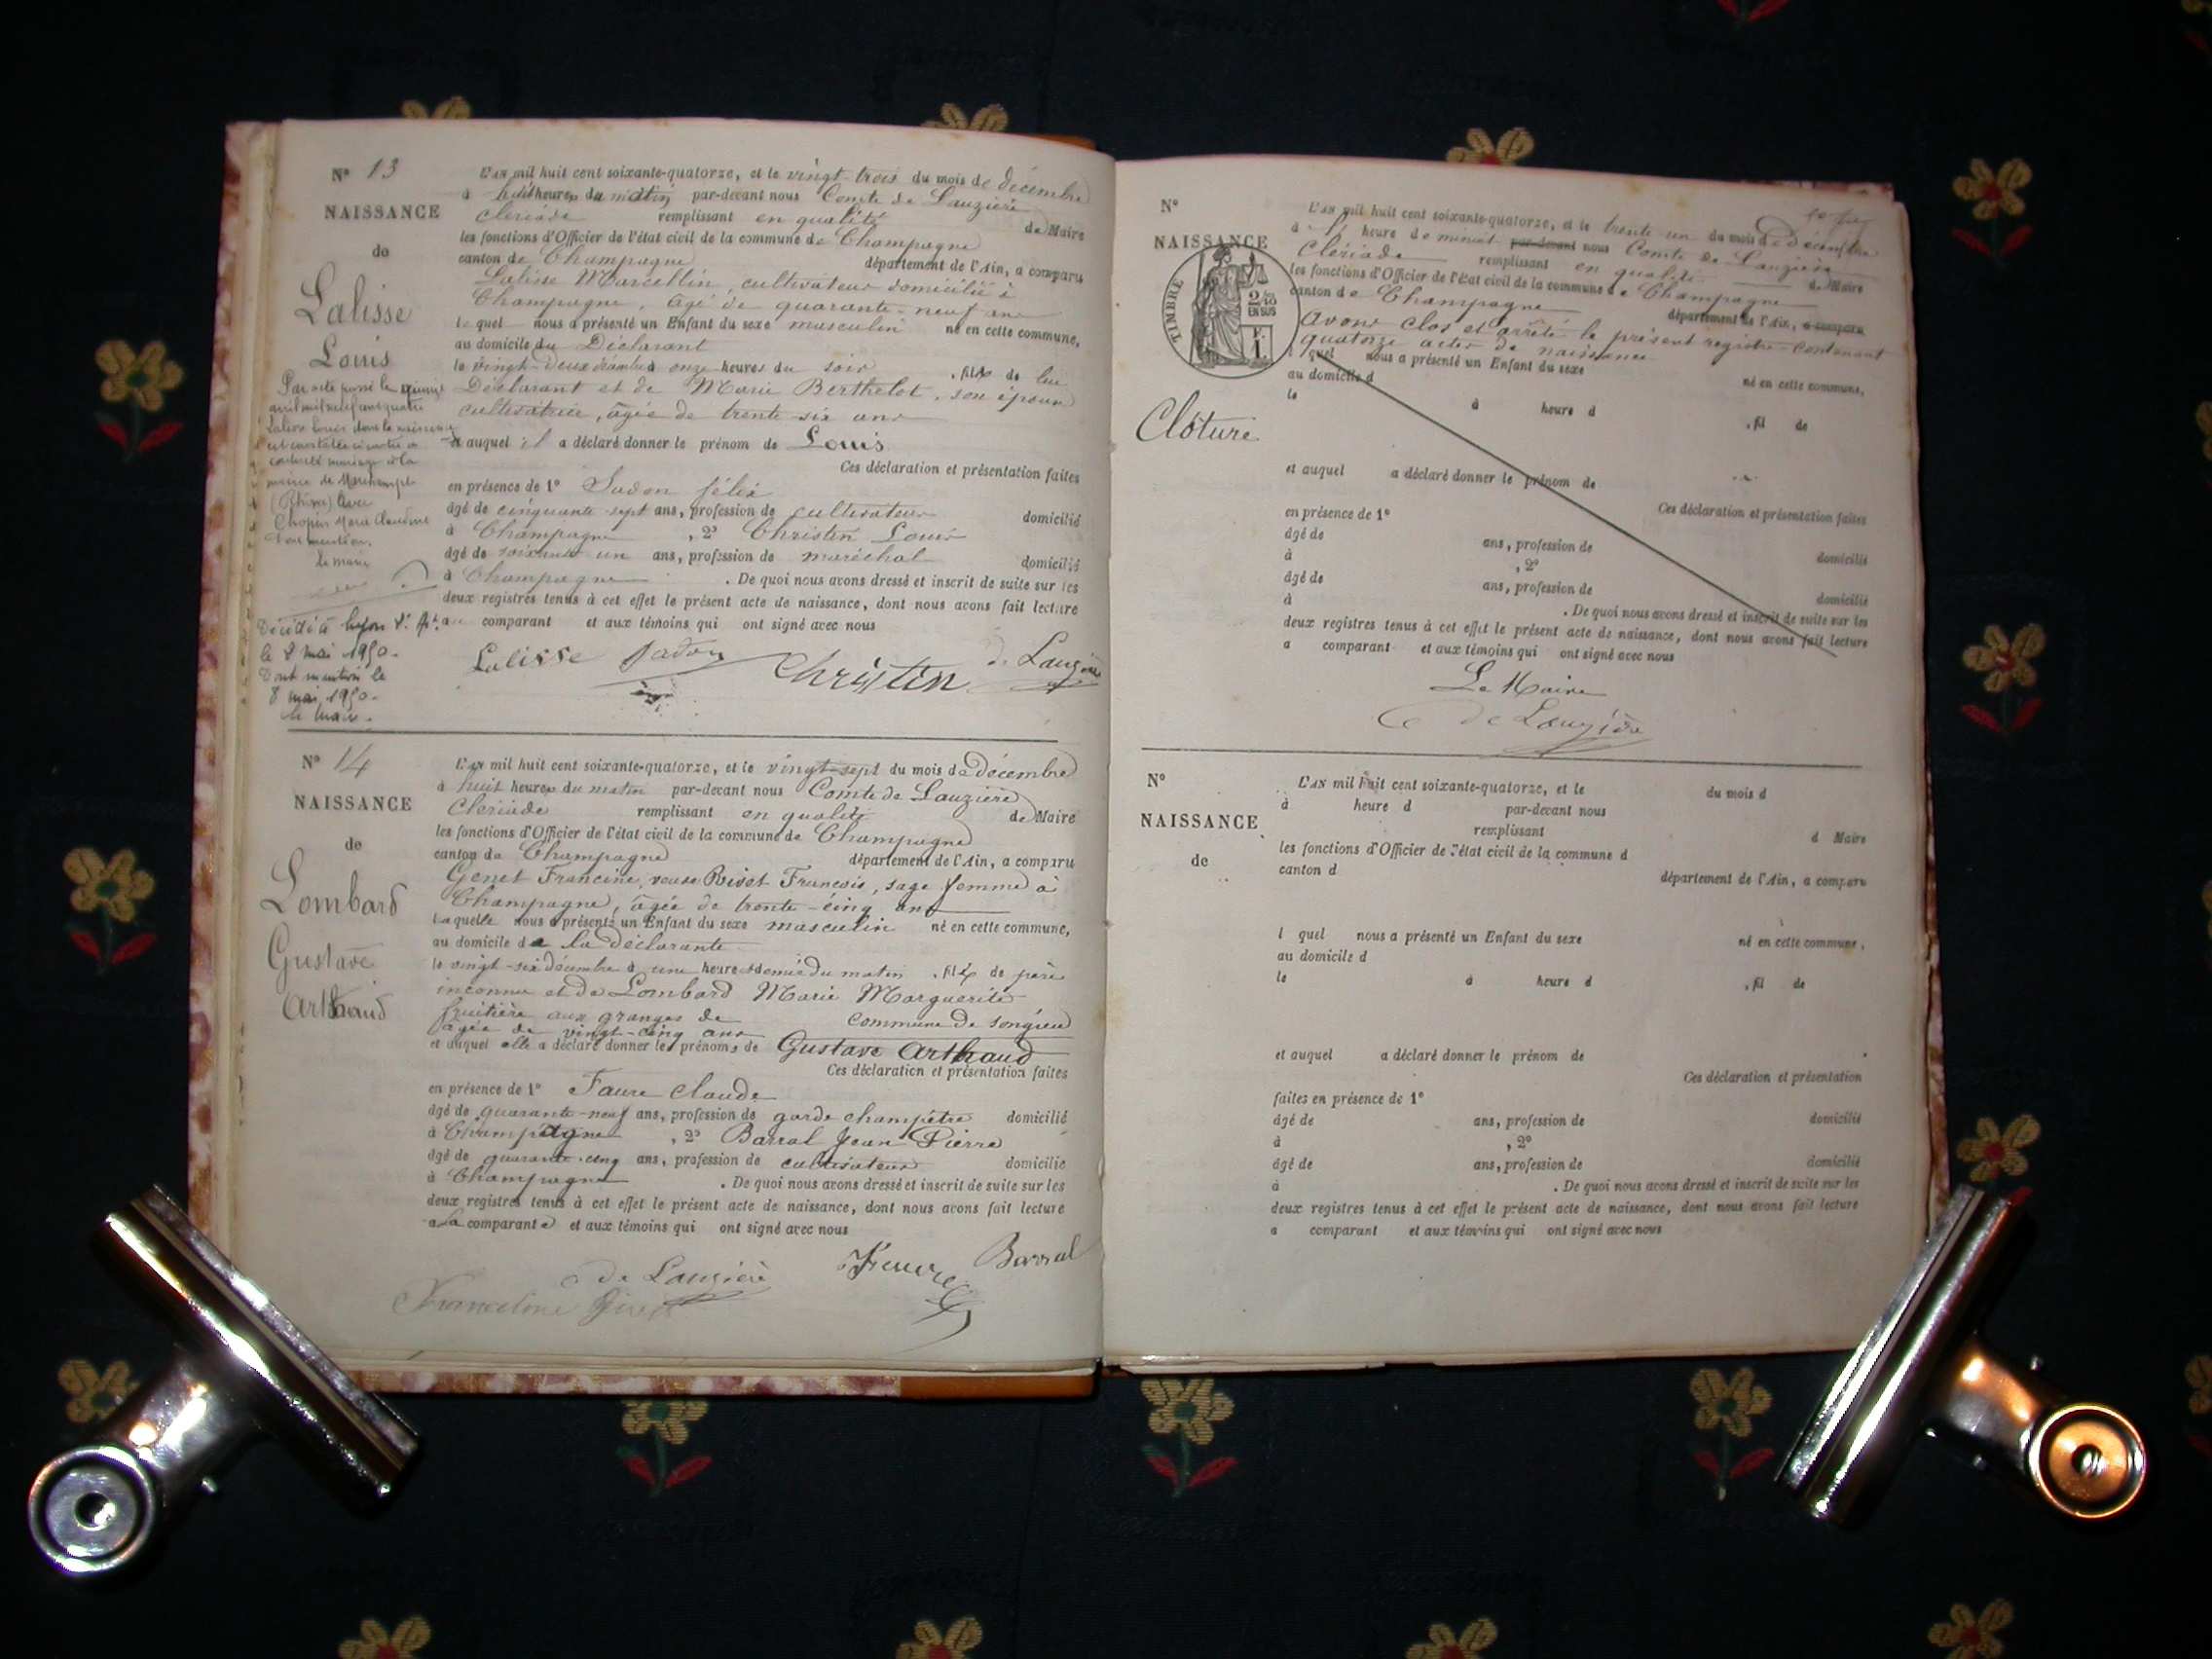 N° 13
NAISSANCE
de
Lalisse
Louis
L'AN mil huit cent soixante-quatorze, et le vingt-trois du mois de décembre
à huit heures du matin par-devant nous Comte de Lauzière
Clériade remplissant en qualité de Maire
les fonctions d'Officier de l'état civil de la commune de Champagne
canton de Champagne département de l'Ain, a comparu
Lalisse Marcellin, cultivateur domicilié à
Champagne, âgé de quarante-neuf ans
lequel nous a présenté un Enfant du sexe masculin né en cette commune,
au domicile du Déclarant
le vingt-deux décembre à onze heures du soir, fils de lui
Déclarant et de Marie Berthelot, son épouse
cultivatrice, âgée de trente-six ans
et auquel il a déclaré donner le prénom de Louis
Ces déclaration et présentation faites
en présence de 1° Sadon félix
âgé de cinquante-sept ans, profession de cultivateur domicilié
à Champagne, 2° Christin Louis
âgé de soixante un ans, profession de maréchal domicilié
à Champagne. De quoi nous avons dressé et inscrit de suite sur les
deux registres tenus à cet effet le présent acte de naissance, dont nous avons fait lecture
au comparant et aux témoins qui ont signé avec nous
Lalisse Sadon Christin de Lauzière
Par acte passé le
avril mil neuf cent quatre
Lalisse Louis dont la naissance
est constatée ci-contre a
contracté mariage à la
mairie de Marchampt
(Rhône) avec
Chopin Marie Claudine
Dont mention.
le maire
Décédé à Lyon
le 2 mai 1950.
Dont mention le
8 mai 1950.
le maire.
N° 14
NAISSANCE
de
Lombard
Gustave
Arthaud
L'AN mil huit cent soixante-quatorze, et le vingt-sept du mois de décembre
à huit heures du matin par-devant nous Comte de Lauzière
Clériade remplissant en qualité de Maire
les fonctions d'Officier de l'état civil de la commune de Champagne
canton de Champagne département de l'Ain, a comparu
Genet Francine, veuve Rivet François, sage femme à
Champagne, âgée de trente-cinq ans
laquelle nous a présenté un Enfant du sexe masculin né en cette commune,
au domicile de la déclarante
le vingt-six décembre à une heure et demie du matin, fils de père
inconnu et de Lombard Marie Marguerite
fruitière aux granges de commune de Songieu
âgée de vingt-cinq ans
et auquel elle a déclaré donner les prénoms de Gustave Arthaud
Ces déclaration et présentation faites
en présence de 1° Faure Claude
âgé de quarante-neuf ans, profession de garde champêtre domicilié
à Champagne, 2° Barral Jean Pierre
âgé de quarante-cinq ans, profession de cultivateur domicilié
à Champagne. De quoi nous avons dressé et inscrit de suite sur les
deux registres tenus à cet effet le présent acte de naissance, dont nous avons fait lecture
a la comparante et aux témoins qui ont signé avec nous
C de Lauzière Faure Barral
N°
NAISSANCE
TIMBRE
2/10
EN SUS
1 F.
Clôture
L'AN mil huit cent soixante-quatorze, et le trente un du mois de décembre
à heure de minuit par-devant nous Comte de Lauzière
Clériade remplissant en qualité de Maire
les fonctions d'Officier de l'état civil de la commune de Champagne
canton de Champagne département de l'Ain, a comparu
avons clos et arrêté le présent registre contenant
quatorze actes de naissance
l quel nous a présenté un Enfant du sexe né en cette commune,
au domicile d
le à heure d , fil de
et auquel a déclaré donner le prénom de
Ces déclaration et présentation faites
en présence de 1°
âgé de ans, profession de domicilié
à , 2°
âgé de ans, profession de domicilié
à . De quoi nous avons dressé et inscrit de suite sur les
deux registres tenus à cet effet le présent acte de naissance, dont nous avons fait lecture
a comparant et aux témoins qui ont signé avec nous
Le Maire
C de Lauzière
N°
NAISSANCE
de
L'AN mil huit cent soixante-quatorze, et le du mois d
à heure d par-devant nous
remplissant d Maire
les fonctions d'Officier de l'état civil de la commune d
canton d département de l'Ain, a comparu
l quel nous a présenté un Enfant du sexe né en cette commune,
au domicile d
le à heure d , fil de
et auquel a déclaré donner le prénom de .
Ces déclaration et présentation
faites en présence de 1°
âgé de ans, profession de domicilié
à , 2°
âgé de ans, profession de domicilié
à . De quoi nous avons dressé et inscrit de suite sur les
deux registres tenus à cet effet le présent acte de naissance, dont nous avons fait lecture
a comparant et aux témoins qui ont signé avec nous